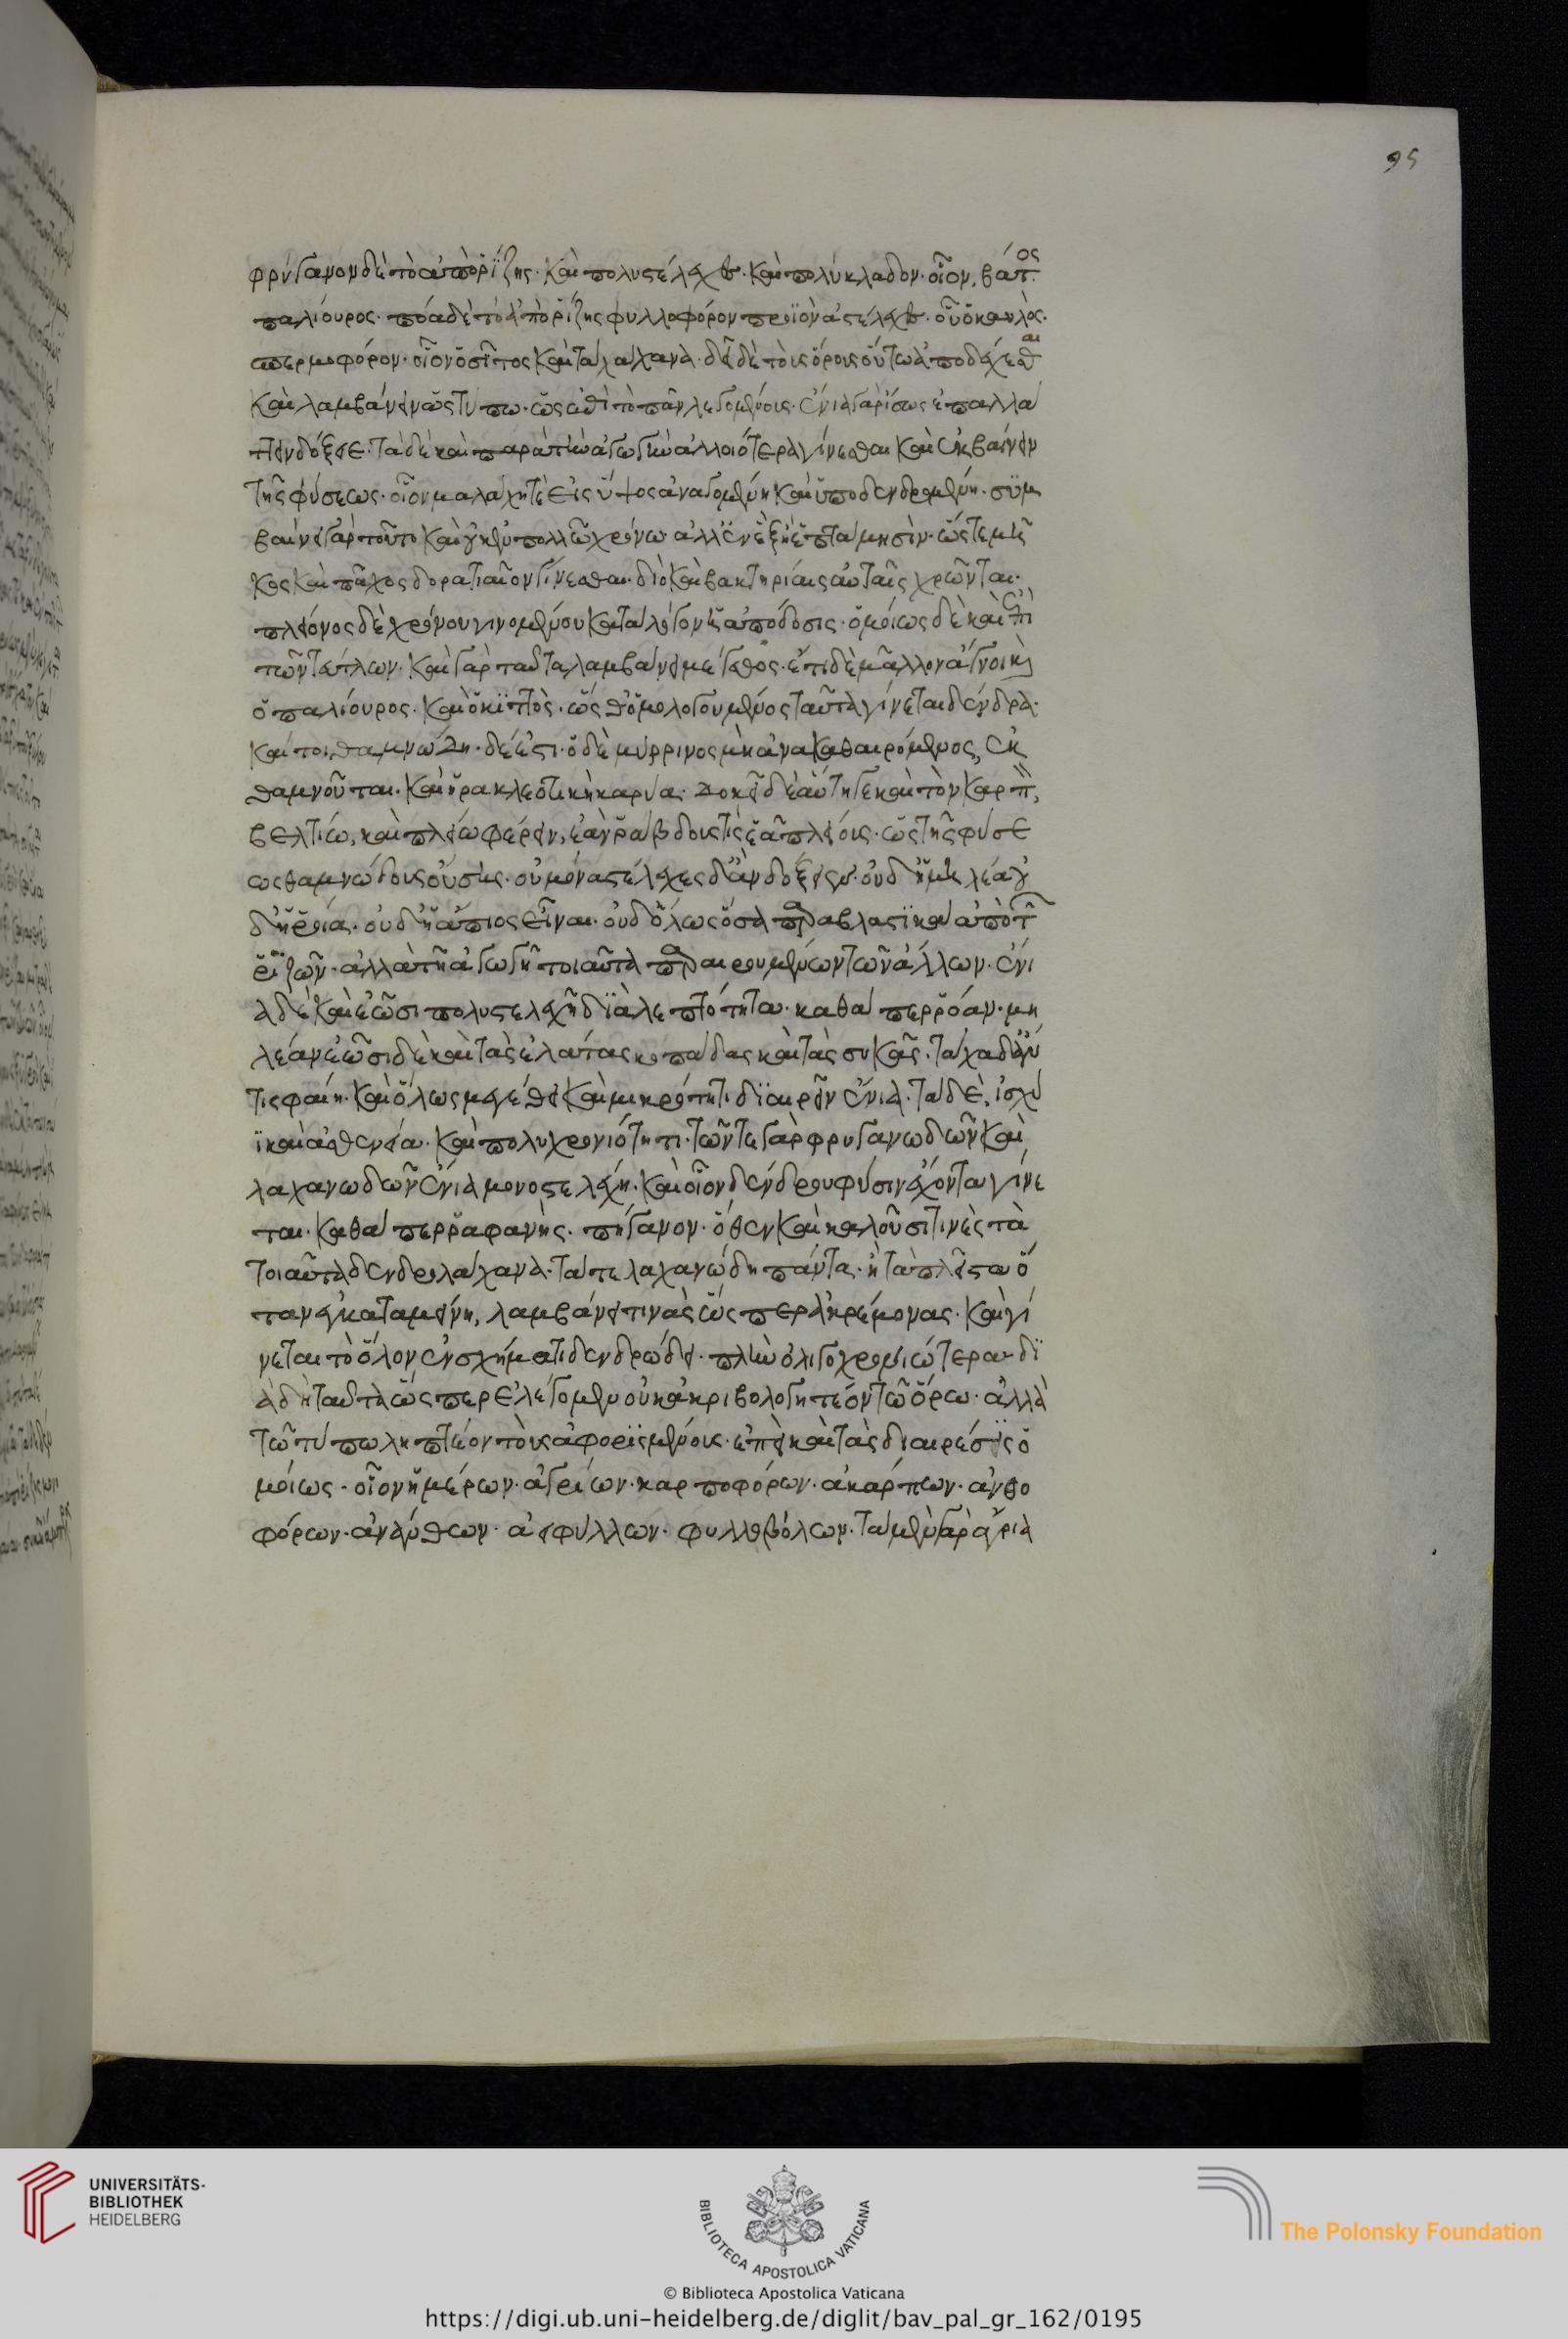 φρύγανον δὲ τὸ ἀπὸ ῥίζης· καὶ πολυστέλεχες· καὶ πολύκλαδον· οἷον, βάτος
παλίουρος· πόα δὲ τὸ ἀπὸ ῥίζης φυλλοφόρον προϊὸν ἀστέλεχες· οὗ ὁ καυλὸς·
σπερμοφόρον· οἷον ὁ σῖτος καὶ τὰ λάχανα· δεῖ δὲ τοὺς ὅρους οὕτω ἀποδέχεσθαι
καὶ λαμβάνειν ὡς τύπω· ὡς ἐπὶ τὸ πᾶν λεγομένοις· ἔνια γὰρ ἴσως ἐπαλλά
ττειν δόξειε· τὰ δὲ καὶ παρὰ τὴν ἀγωγὴν ἀλλοιότερα γίνεσθαι καὶ ἐκβαίνειν
τῆς φύσεως· οἷον μαλάχη τὲ εἰς ὕψος ἀναγομένη καὶ ὑποδενδρομένη· συμ
βαίνει γὰρ τοῦτο καὶ γ' ἐν πολλῶ χρόνω· ἀλλ' ἐν ἓξ ἢ ἑπτὰ μησίν· ὥστε μῆ
κος καὶ πᾶχος δορατιαῖον γίνεσθαι· διὸ καὶ βακτηρίαις αὐταῖς χρῶνται·
πλείονος δὲ χρόνου γινομένου κατὰ λόγον ἡ ἀπόδοσις· ὁμοίως δὲ καὶ ἐπὶ
τῶν τεύτλων· καὶ γὰρ ταῦτα λαμβάνει μέγεθος· ἐπὶ δὲ μᾶλλον ἄγνοι καὶ
ὁ παλίουρος· καὶ ὁ κιττὸς· ὥσθ' ὁμολογουμένως ταῦτα γίνεται δένδρα·
καί τοι θαμνώδη· δέ ἐστι· ὁ δὲ μύρρινος μὴ ἀνακαθαιρόμενος, ἐκ
θαμνοῦται· καὶ ἡρακλεωτικὴ καρύα· δοκεῖ δὲ αὕτη γε καὶ τὸν καρπὸν,
βελτίω, καὶ πλείω φέρειν, ἐὰν ῥάβδους τὶς ἐᾷ πλείους· ὡς τῆς φύσε
ως θαμνώδους οὔσης· οὐ μόνα στέλεχες δ' ἂν δόξειεν· οὐδ' ἡ μηλέα γ'
δ' ἡ ῥόα· οὐδ' ἡ ἄπιος εἶναι· οὐδ' ὅλως ὅσα παραβλαστικὰ ἀπὸ τῶν
ῥιζῶν· ἀλλὰ τῆ ἀγωγῆ τοιαῦτα παραιρουμένων τῶν ἄλλων· ἔνι
α δὲ καὶ ἐῶσι πολυστελεχῆ διὰ λεπτότητα· καθάπερ ῥόαν· μη
λέαν ἐῶσι δὲ καὶ τὰς ἐλαίας κοπάδας καὶ τὰς συκᾶς· τάχα δ' ἄν
τις φαίη· καὶ ὅλως μεγέθει καὶ μικρότητι διαιρεῖν ἔνια· τὰ δὲ, ἰσχύ
ϊ καὶ ἀσθενεία· καὶ πολυχρονιότητι· τῶν τε γὰρ φρυγανωδῶν καὶ
λαχανωδῶν ἔνια μονοστελέχη· καὶ οἷον δένδρου φύσιν ἔχοντα γίνε
ται· καθάπερ ῥαφανὴς· πήγανον· ὅθεν καὶ καλοῦσι τινὲς τὰ
τοιαῦτα δενδρολάχανα· τά τε λαχανώδη πάντα· ἢ τὰ πλεῖστα ὅ
ταν ἐγκαταμείνη, λαμβάνει τινὰς ὥσπερ ἀκρέμονας· καὶ γί
νεται τὸ ὅλον ἐν σχήματι δενδρώδει· πλὴν ὀλιγοχρονιώτερα· δι
ὰ δὴ ταῦτα ὥσπερ ἐλέγομεν οὐκ ἀκριβολογητέον τῶ ὅρω· ἀλλὰ
τῶ τύπω ληπτέον τοὺς ἀφορισμένους· ἐπεὶ καὶ τὰς διαιρέσεις ὁ
μοίως· οἷον ἡμέρων· ἀγρίων· καρποφόρων· ἀκάρπων· ἀνθο
φόρων· ἀνανθων· ἀειφύλλων· φυλλοβόλων· τὰ μὲν γὰρ ἄγρια
95
UNIVERSITÄTS-
BIBLIOTHEK
HEIDELBERG
BIBLIOTECA APOSTOLICA VATICANA
The Polonsky Foundation
© Biblioteca Apostolica Vaticana
https://digi.ub.uni-heidelberg.de/diglit/bav_pal_gr_162/0195